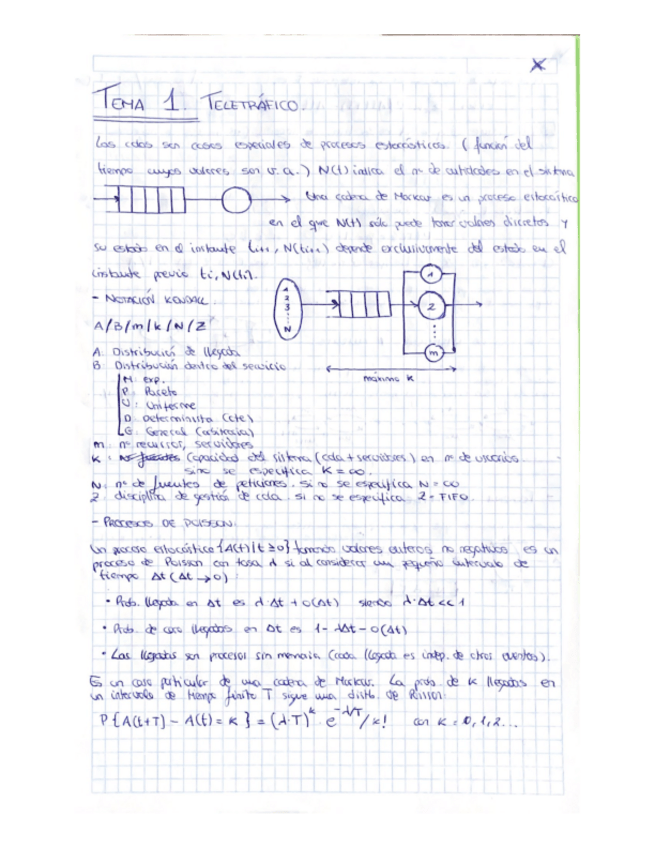 TEMA 1. TELETRÁFICO.
Las colas son casos especiales de procesos estocásticos. (función del
tiempo cuyos valores son v.a.) N(t) indica el nº de entidades en el sistema
Una cadena de Markov es un proceso estocástico
en el que N(t) sólo puede tomar valores discretos y
su estado en el instante ti+1, N(ti+1) depende exclusivamente del estado en el
instante previo ti, N(ti).
- NOTACIÓN KENDALL
A/B/m/k/N/Z
1
2
3
N
1
2
m
máximo K
A: Distribución de llegada
B: Distribución dentro del servicio
M: exp.
P: Pareto
U: Uniforme
D: Determinista (cte)
G: General (arbitraria)
m: nº recursos, servidores
K: Capacidad del sistema (cola + servidores) en nº de usuarios.
si no se especifica K = ∞.
N: nº de fuentes de peticiones. Si no se especifica N = ∞
Z: disciplina de gestión de cola. si no se especifica Z = FIFO.
- PROCESOS DE POISSON.
Un proceso estocástico {A(t)|t≥0} tomando valores enteros no negativos es un
proceso de Poisson con tasa λ si al considerar un pequeño intervalo de
tiempo Δt (Δt → 0)
• Prob. llegada en Δt es λ·Δt + o(Δt) siendo λ·Δt << 1
• Prob. de cero llegadas en Δt es 1 - λΔt - o(Δt)
• Las llegadas son procesos sin memoria (cada llegada es indep. de otros eventos).
Es un caso particular de una cadena de Markov. La prob. de K llegadas en
un intervalo de tiempo finito T sigue una distrib. de Poisson:
P{A(t+T) - A(t) = K} = (λ·T)^K · e^-λT / K! con K = 0,1,2...